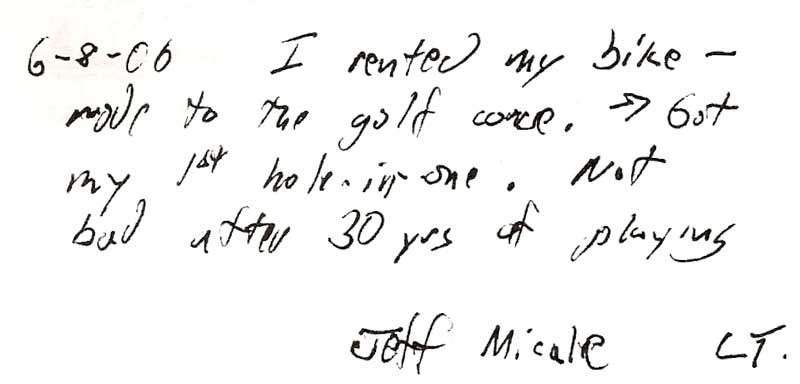 6-8-06 I rented my bike –
rode to the golf course. → Got
my 1st hole-in-one. Not
bad after 30 yrs of playing
Jeff Micale CT.